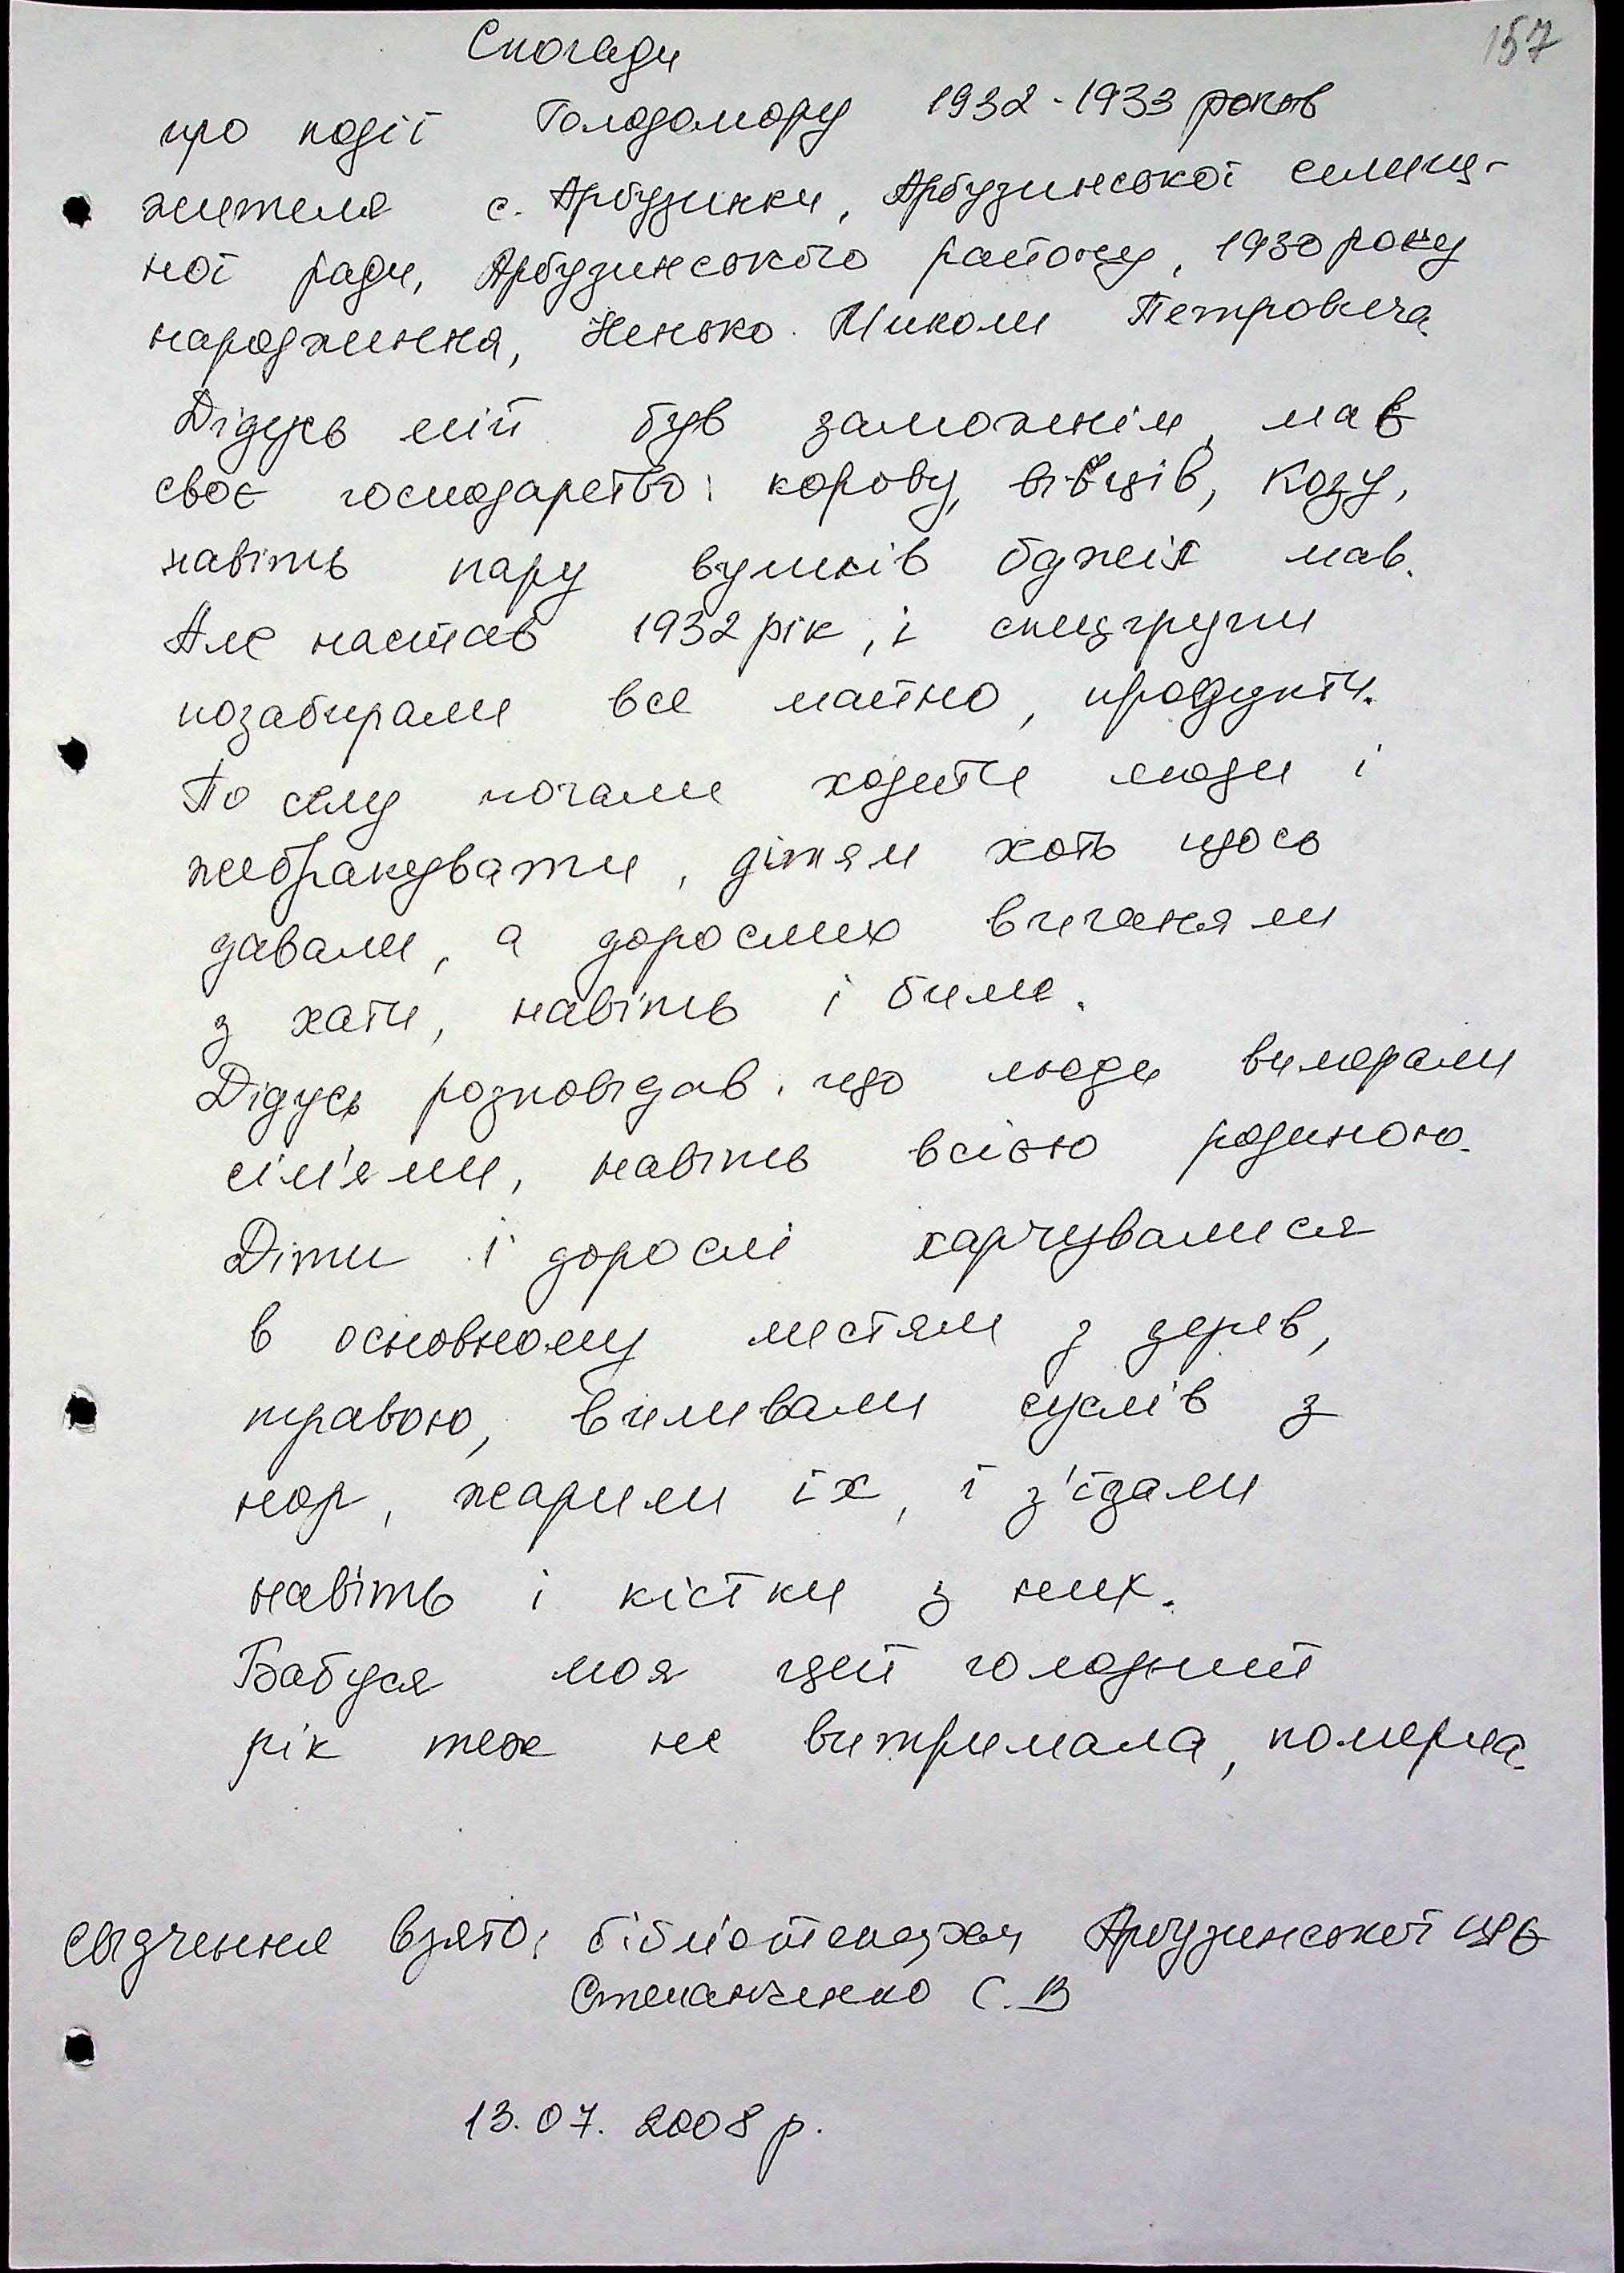 157
Спогади
про події Голодомору 1932-1933 років
жителя с. Арбузинки, Арбузинської селищ-
ної ради, Арбузинського району, 1930 року
народження, Ненько Миколи Петровича.
Дідусь мій був заможнім, мав
своє господарство: корову, вівців, козу,
навіть пару вуликів бджіл мав.
Але настав 1932 рік, і спецгрупи
позабирали все майно, продукти.
По селу почали ходити люди і
жебракувати, дітям хоть щось
давали, а дорослих виганяли
з хати, навіть і били.
Дідусь розповідав, що люди вимерали
сім'ями, навіть всією родиною.
Діти і дорослі харчувалися
в основному листям з дерев,
травою, виливали суслів з
нор, жарили їх, і з'їдали
навіть і кістки з них.
Бабуся моя цей голодний
рік теж не витримала, померла.
Свідчення взято: бібліотекарем Арбузинської ЦРБ
Степанченко С.В
13.07.2008 р.